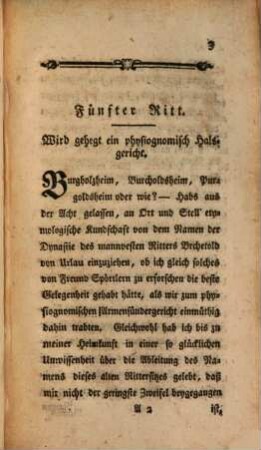 3
Fünfter Ritt.
Wird gehegt ein physiognomisch Hals-
gericht.
Burgholzheim, Burcholdsheim, Pur-
goldsheim oder wie? — Habs aus
der Acht gelassen, an Ort und Stell ety-
mologische Kundschaft von dem Namen der
Dynastie des mannvesten Ritters Bechtold
von Urlau einzuziehen, ob ich gleich solches
von Freund Spörtlern zu erforschen die beste
Gelegenheit gehabt hätte, als wir zum phy-
siognomischen Armensündergericht einmüthig
dahin trabten. Gleichwohl hab ich bis zu
meiner Heimkunft in einer so glücklichen
Unwissenheit über die Ableitung des Na-
mens dieses alten Rittersitzes gelebt, daß
mir nicht der geringste Zweifel beygegangen
A 2 ist,